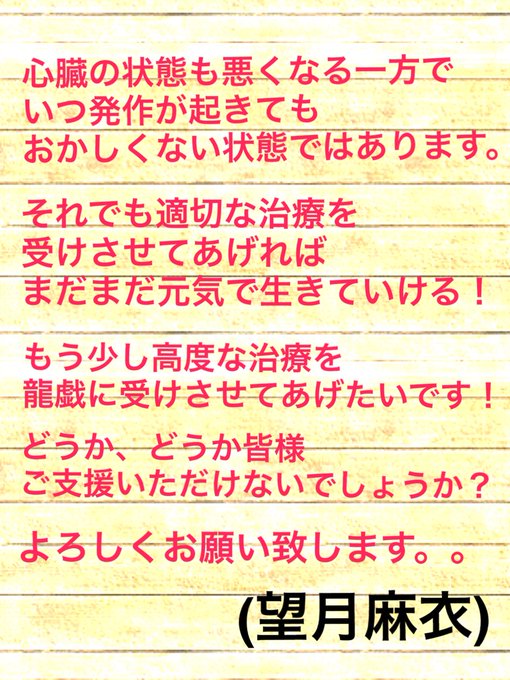 心臓の状態も悪くなる一方で
いつ発作が起きても
おかしくない状態ではあります。
それでも適切な治療を
受けさせてあげれば
まだまだ元気で生きていける！
もう少し高度な治療を
龍戯に受けさせてあげたいです！
どうか、どうか皆様
ご支援いただけないでしょうか？
よろしくお願い致します。。
(望月麻衣)